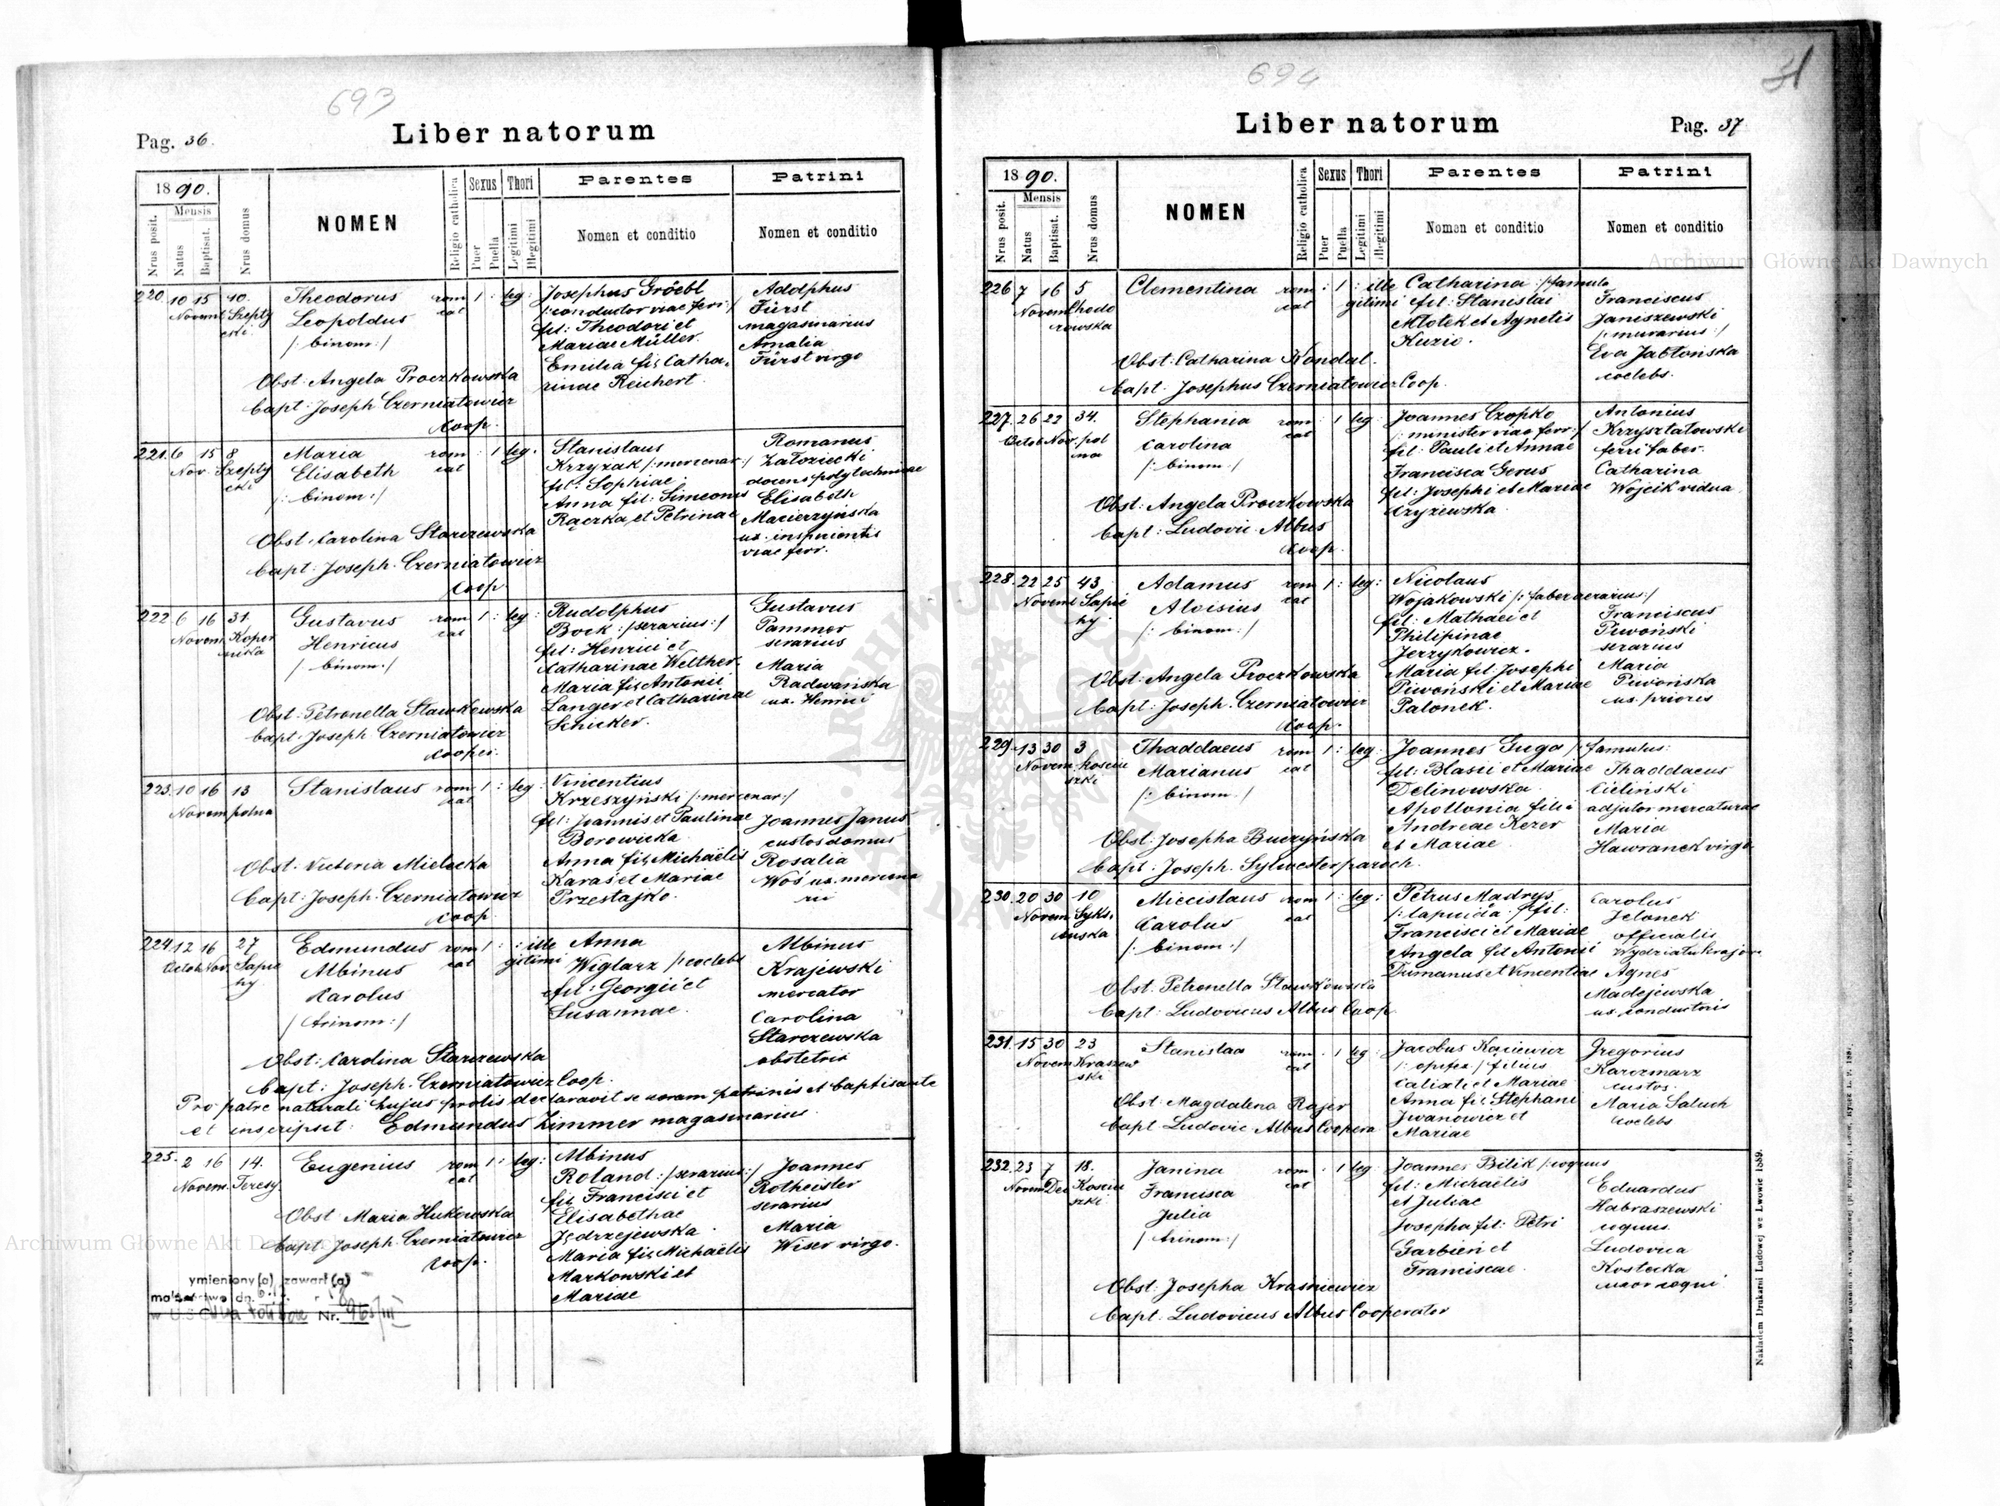 693
Pag. 36.
Liber natorum
1890.
Mensis
Nrus posit.
Natus
Baptisat.
Nrus domus
NOMEN
Religio catholica
Sexus
Puer
Puella
Thori
Legitimi
Illegitimi
Parentes
Nomen et conditio
Patrini
Nomen et conditio
220 10 15 10. Theodorus rom 1 : leg: Josephus Gröebl Adolphus
Novem Szepty Leopoldus cat /:conductor viae ferr:/ Fürst
cki. /: binom:/ fil: Theodori et magasinarius
Mariae Müller. Amalia
Emilia fil. Catha, Fürst virgo
Obst: Angela Proczkowska rinae Reichert.
bapt: Joseph Czerniatowicz
Coop.
221. 6 15 8 Maria rom : 1 leg. Stanislaus Romanus
Nov. Szepty Elisabeth cat Krzyzak /:mercenar:/ Załoziecki
cki /: binom:/ fil: Sophiae. docens polytechnicae
Anna fil: Simeonis Elisabeth
Obst. Carolina Starczewska Rączka et Petrinae Macierzyńska
bapt: Joseph. Czerniatowicz viae ferr.
Coop.
222 6 16 31. Gustavus rom 1 : leg: Rudolphus Gustavus
Novem. Koper Henricus cat Bock :/serarius:/ Pammer
nika /: binom:/ fil: Henrici et serarius
Catharinae Welther. Maria
Maria fil. Antonii Radwańska
Obst: Petronella Sławkowska Langer et Catharinae ux. Henrici
bapt: Joseph. Czerniatowicz Schicker.
Cooper.
223. 10 16 13 Stanislaus rom 1 : leg: Vincentius
Novem polna cat Krzeszyński /:mercenar:/
fil: Joannis et Paulinae Joannes Janus
Borowicka. custos domus
Obst: Victoria Mielacka Anna fil. Michaëlis Rosalia
bapt: Joseph. Czerniatowicz Karaś et Mariae Woś ux. mercena
Coop. Przestajko. rii
224. 12 16 27 Edmundus rom 1 : : ille Anna Albinus
Octob. Nov. Sapie Albinus cat gitimi Wiglarz /:coelebs Krajewski
hy Karolus fil: Georgii et mercator
/ trinom:/ Susannae. Carolina
Starczewska
Obst: Carolina Starczewska obstetrix
bapt: Joseph. Czerniatowicz Coop.
Pro patre naturali hujus prolis declaravit se coram patrinis et baptisante
et inscripsit: Edmundus Zimmer magasinarius.
225. 2 16 14. Eugenius rom 1 : leg: Albinus
Novem. Teresy. cat Roland :/serarius:/ Joannes
fil. Francisci et Rotheister
Obst Maria Hukowska Elisabethae serarius
bapt. Joseph. Czerniatowicz Jędrzejewska. Maria
Coop. Maria fil. Michaëlis Wiser virgo.
Markowski et
Mariae
ymieniony (a) zawarł (a)
małżeństwo dn.
w U S C Nr. 965/III
694
Liber natorum
Pag. 37
1890.
Mensis
Nrus posit.
Natus
Baptisat.
Nrus domus
NOMEN
Religio catholica
Sexus
Puer
Puella
Thori
Legitimi
Illegitimi
Parentes
Nomen et conditio
Patrini
Nomen et conditio
226 7 16 5 Clementina rom : 1 : ille Catharina :/famula
Novem Chodo cat gitimi fil: Stanislai Franciscus
rowska Młotek et Agnetis Janiszewski
Kuzio. /:murarius:/
Obst: Catharina Kondal. Eva Jabłońska
bapt: Josephus Czerniatowicz Coop. coelebs.
227. 26 22 34. Stephania rom : 1 leg: Joannes Czopko Antonius
Octob Nov. pol Carolina cat /: minister viae ferr:/ Krzyształowski
na /: binom:/ fil: Pauli et Annae ferri faber.
Francisca Gerus Catharina
Obst: Angela Proczkowska fil: Josephi et Mariae Wojcik vidua
bapt: Ludovic. Albus Czyzewska.
Coop.
228. 22 25 43 Adamus rom 1 : leg: Nicolaus
Novem Sapie Aloisius cat Wojakowski /:faber aerarius:/
hy. /: binom:/ fil: Mathaei et Franciscus
Philipinae Piwoński
Jerzykowicz. serarius
Obst: Angela Proczkowska Maria fil. Josephi Maria
bapt: Joseph. Czerniatowicz Piwoński et Mariae Piwońska
Coop. Palonek. ux. prioris
229. 13 30 3 Thaddaeus rom 1 : leg: Joannes Guga /:famulus:
Novem. Kosciu Marianus cat fil: Blasii et Mariae Thaddaeus
szki /: binom:/ Delinowska. Cieliński
Apollonia filia adjutor mercaturae
Obst: Josepha Buczyńska Andreae Kezer Maria
bapt: Joseph. Sylwester paroch. et Mariae. Hawranek virgo
230. 20 30 10 Miecislaus rom 1 : leg: Petrus Madrys Carolus
Novem Syks. Carolus cat /: lapicida :/ fil: Jelonek
tuska /: binom:/ Francisci et Mariae officialis
Angela fil Antonii Wydziału krajow.
Obst. Petronella Sławkowska Dumanus et Vincentiae Agnes
bapt: Ludovicus Albus Coop. Madejewska
ux. conductoris
231. 15 30 23 Stanislaa rom : 1 leg: Jacobus Kasiewicz Gregorius
Novem Kraszew cat /: opifex:/ filius Karczmarz
ski Calixti et Mariae custos.
Obst: Magdalena Rajer Anna fil. Stephani Maria Saluch
bapt Ludovic Albus Coopera Iwanowicz et coelebs
Mariae
232. 23 7 18. Janina rom : 1 leg. Joannes Bilik /:coquus
Novem Dec Kosciu Francisca cat fil: Michaëlis Eduardus
szki Julia et Juliae Habraszewski
/ trinom:/ Josepha fil: Petri coquus.
Garbień et Ludovica
Obst: Josepha Krasniewicz Franciscae. Kostecka
bapt. Ludovicus Albus Cooperator uxor coqui.
Nakładem Drukarni Ludowej we Lwowie 1889.
Archiwum Główne Akt Dawnych
Archiwum Główne Akt Dawnych